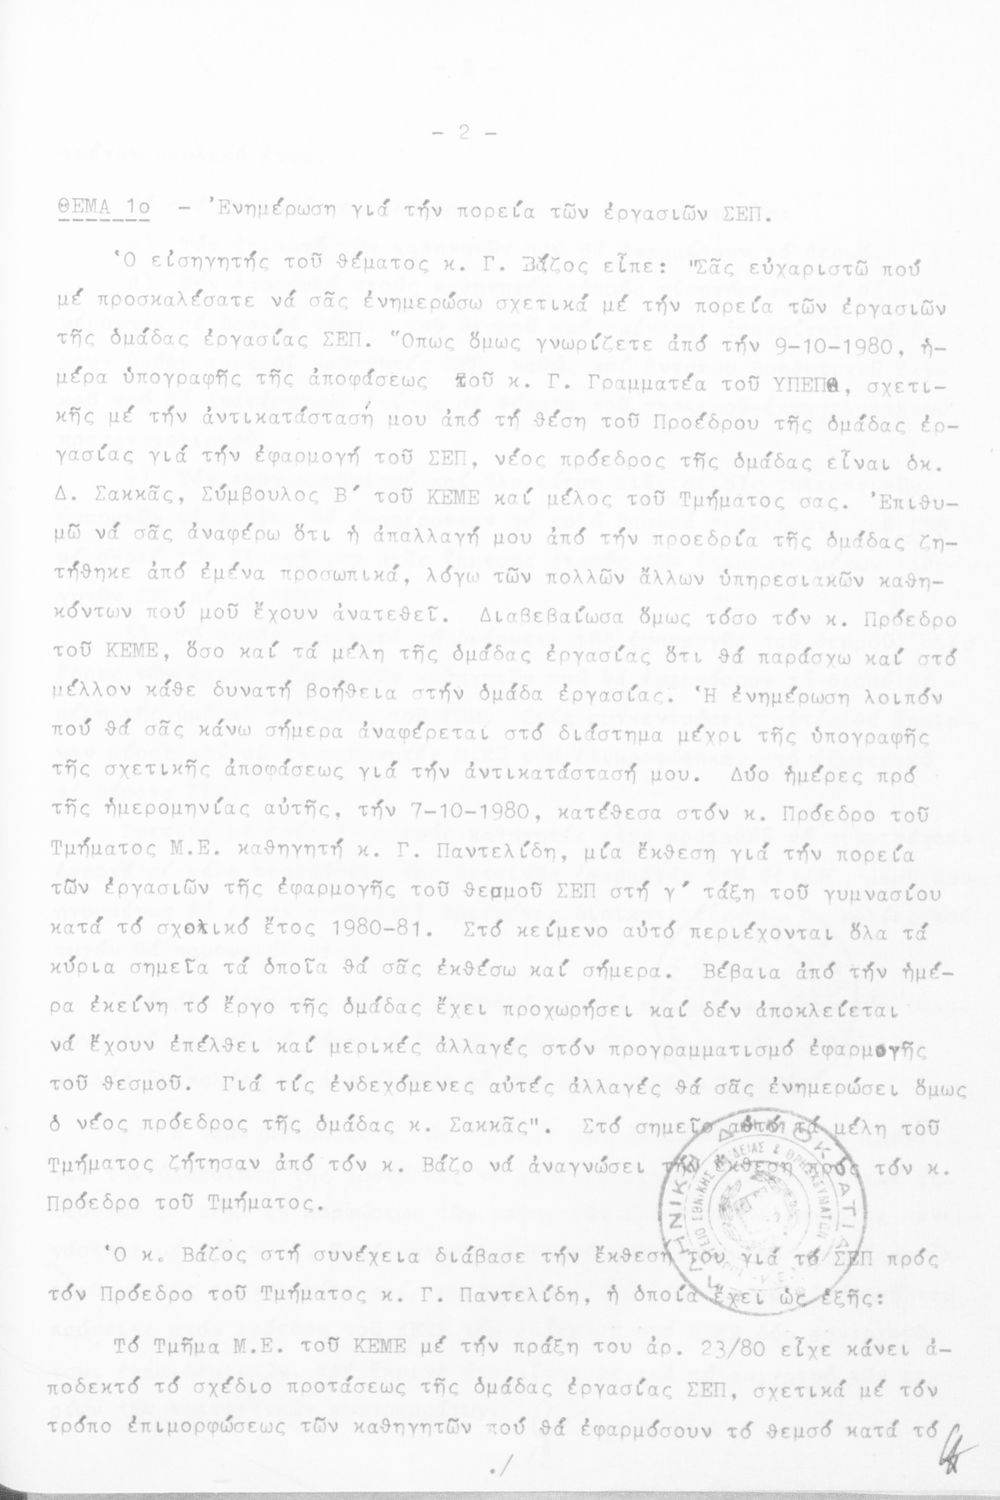 - 2 -
ΘΕΜΑ 1ο - Ἐνημέρωση γιά τήν πορεία τῶν ἐργασιῶν ΣΕΠ.
Ὁ εἰσηγητής τοῦ θέματος κ. Γ. Βάζος εἶπε: "Σᾶς εὐχαριστῶ πού
μέ προσκαλέσατε νά σᾶς ἐνημερώσω σχετικά μέ τήν πορεία τῶν ἐργασιῶν
τῆς ὁμάδας ἐργασίας ΣΕΠ. Ὅπως ὅμως γνωρίζετε ἀπό τήν 9-10-1980, ἡ-
μέρα ὑπογραφῆς τῆς ἀποφάσεως τοῦ κ. Γ. Γραμματέα τοῦ ΥΠΕΠΘ, σχετι-
κῆς μέ τήν ἀντικατάστασή μου ἀπό τή θέση τοῦ Προέδρου τῆς ὁμάδας ἐρ-
γασίας γιά τήν ἐφαρμογή τοῦ ΣΕΠ, νέος πρόεδρος τῆς ὁμάδας εἶναι ὁκ.
Δ. Σακκᾶς, Σύμβουλος Β΄ τοῦ ΚΕΜΕ καί μέλος τοῦ Τμήματος σας. Ἐπιθυ-
μῶ νά σᾶς ἀναφέρω ὅτι ἡ ἀπαλλαγή μου ἀπό τήν προεδρία τῆς ὁμάδας ζη-
τήθηκε ἀπό ἐμένα προσωπικά, λόγω τῶν πολλῶν ἄλλων ὑπηρεσιακῶν καθη-
κόντων πού μοῦ ἔχουν ἀνατεθεῖ. Διαβεβαίωσα ὅμως τόσο τόν κ. Πρόεδρο
τοῦ ΚΕΜΕ, ὅσο καί τά μέλη τῆς ὁμάδας ἐργασίας ὅτι θά παράσχω καί στό
μέλλον κάθε δυνατή βοήθεια στήν ὁμάδα ἐργασίας. Ἡ ἐνημέρωση λοιπόν
πού θά σᾶς κάνω σήμερα ἀναφέρεται στό διάστημα μέχρι τῆς ὑπογραφῆς
τῆς σχετικῆς ἀποφάσεως γιά τήν ἀντικατάστασή μου. Δύο ἡμέρες πρό
τῆς ἡμερομηνίας αὐτῆς, τήν 7-10-1980, κατέθεσα στόν κ. Πρόεδρο τοῦ
Τμήματος Μ.Ε. καθηγητή κ. Γ. Παντελίδη, μία ἔκθεση γιά τήν πορεία
τῶν ἐργασιῶν τῆς ἐφαρμογῆς τοῦ θεσμοῦ ΣΕΠ στή γ΄ τάξη τοῦ γυμνασίου
κατά τό σχολικό ἔτος 1980-81. Στό κείμενο αὐτό περιέχονται ὅλα τά
κύρια σημεῖα τά ὁποῖα θά σᾶς ἐκθέσω καί σήμερα. Βέβαια ἀπό τήν ἡμέ-
ρα ἐκείνη τό ἔργο τῆς ὁμάδας ἔχει προχωρήσει καί δέν ἀποκλείεται
νά ἔχουν ἐπέλθει καί μερικές ἀλλαγές στόν προγραμματισμό ἐφαρμογῆς
τοῦ θεσμοῦ. Γιά τίς ἐνδεχόμενες αὐτές ἀλλαγές θά σᾶς ἐνημερώσει ὅμως
ὁ νέος πρόεδρος τῆς ὁμάδας κ. Σακκᾶς". Στό σημεῖο αὐτό τά μέλη τοῦ
Τμήματος ζήτησαν ἀπό τόν κ. Βάζο νά ἀναγνώσει τήν ἔκθεση πρός τόν κ.
Πρόεδρο τοῦ Τμήματος.
Ὁ κ. Βάζος στή συνέχεια διάβασε τήν ἔκθεσή του γιά τό ΣΕΠ πρός
τόν Πρόεδρο τοῦ Τμήματος κ. Γ. Παντελίδη, ἡ ὁποία ἔχει ὡς ἑξῆς:
Τό Τμῆμα Μ.Ε. τοῦ ΚΕΜΕ μέ τήν πράξη του ἀρ. 23/80 εἶχε κάνει ἀ-
ποδεκτό τό σχέδιο προτάσεως τῆς ὁμάδας ἐργασίας ΣΕΠ, σχετικά μέ τόν
τρόπο ἐπιμορφώσεως τῶν καθηγητῶν πού θά ἐφαρμόσουν τό θεμσό κατά τό
./